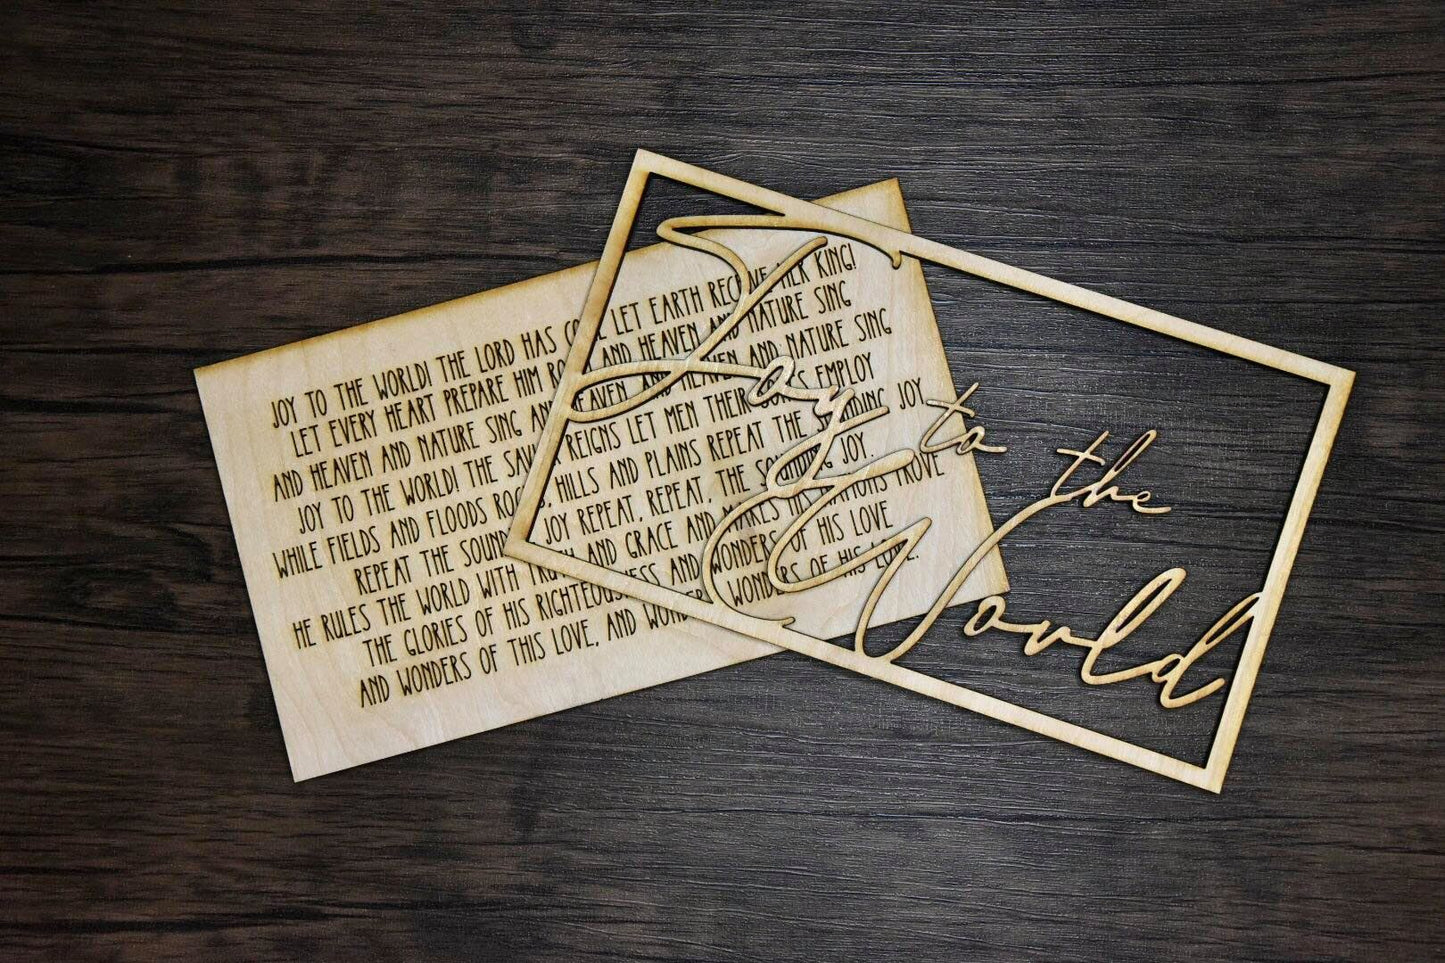 JOY TO THE WORLD! THE LORD HAS LET EARTH RECEIVE HER KING!
LET EVERY HEART PREPARE HIM AND HEAVEN AND NATURE SING
AND HEAVEN AND NATURE SING AND HEAVEN, AND HEAVEN AND NATURE SING
JOY TO THE WORLD! THE REIGNS LET MEN THEIR EMPLOY
WHILE FIELDS AND FLOODS HILLS AND PLAINS REPEAT THE SOUNDING JOY
REPEAT THE JOY REPEAT, REPEAT, THE SOUNDING JOY.
HE RULES THE WORLD WITH TRUTH AND GRACE AND MAKES NATIONS PROVE
THE GLORIES OF HIS RIGHTEOUSNESS AND WONDERS OF HIS LOVE
AND WONDERS OF THIS LOVE, AND WONDERS OF HIS LOVE.
Joy to the
World